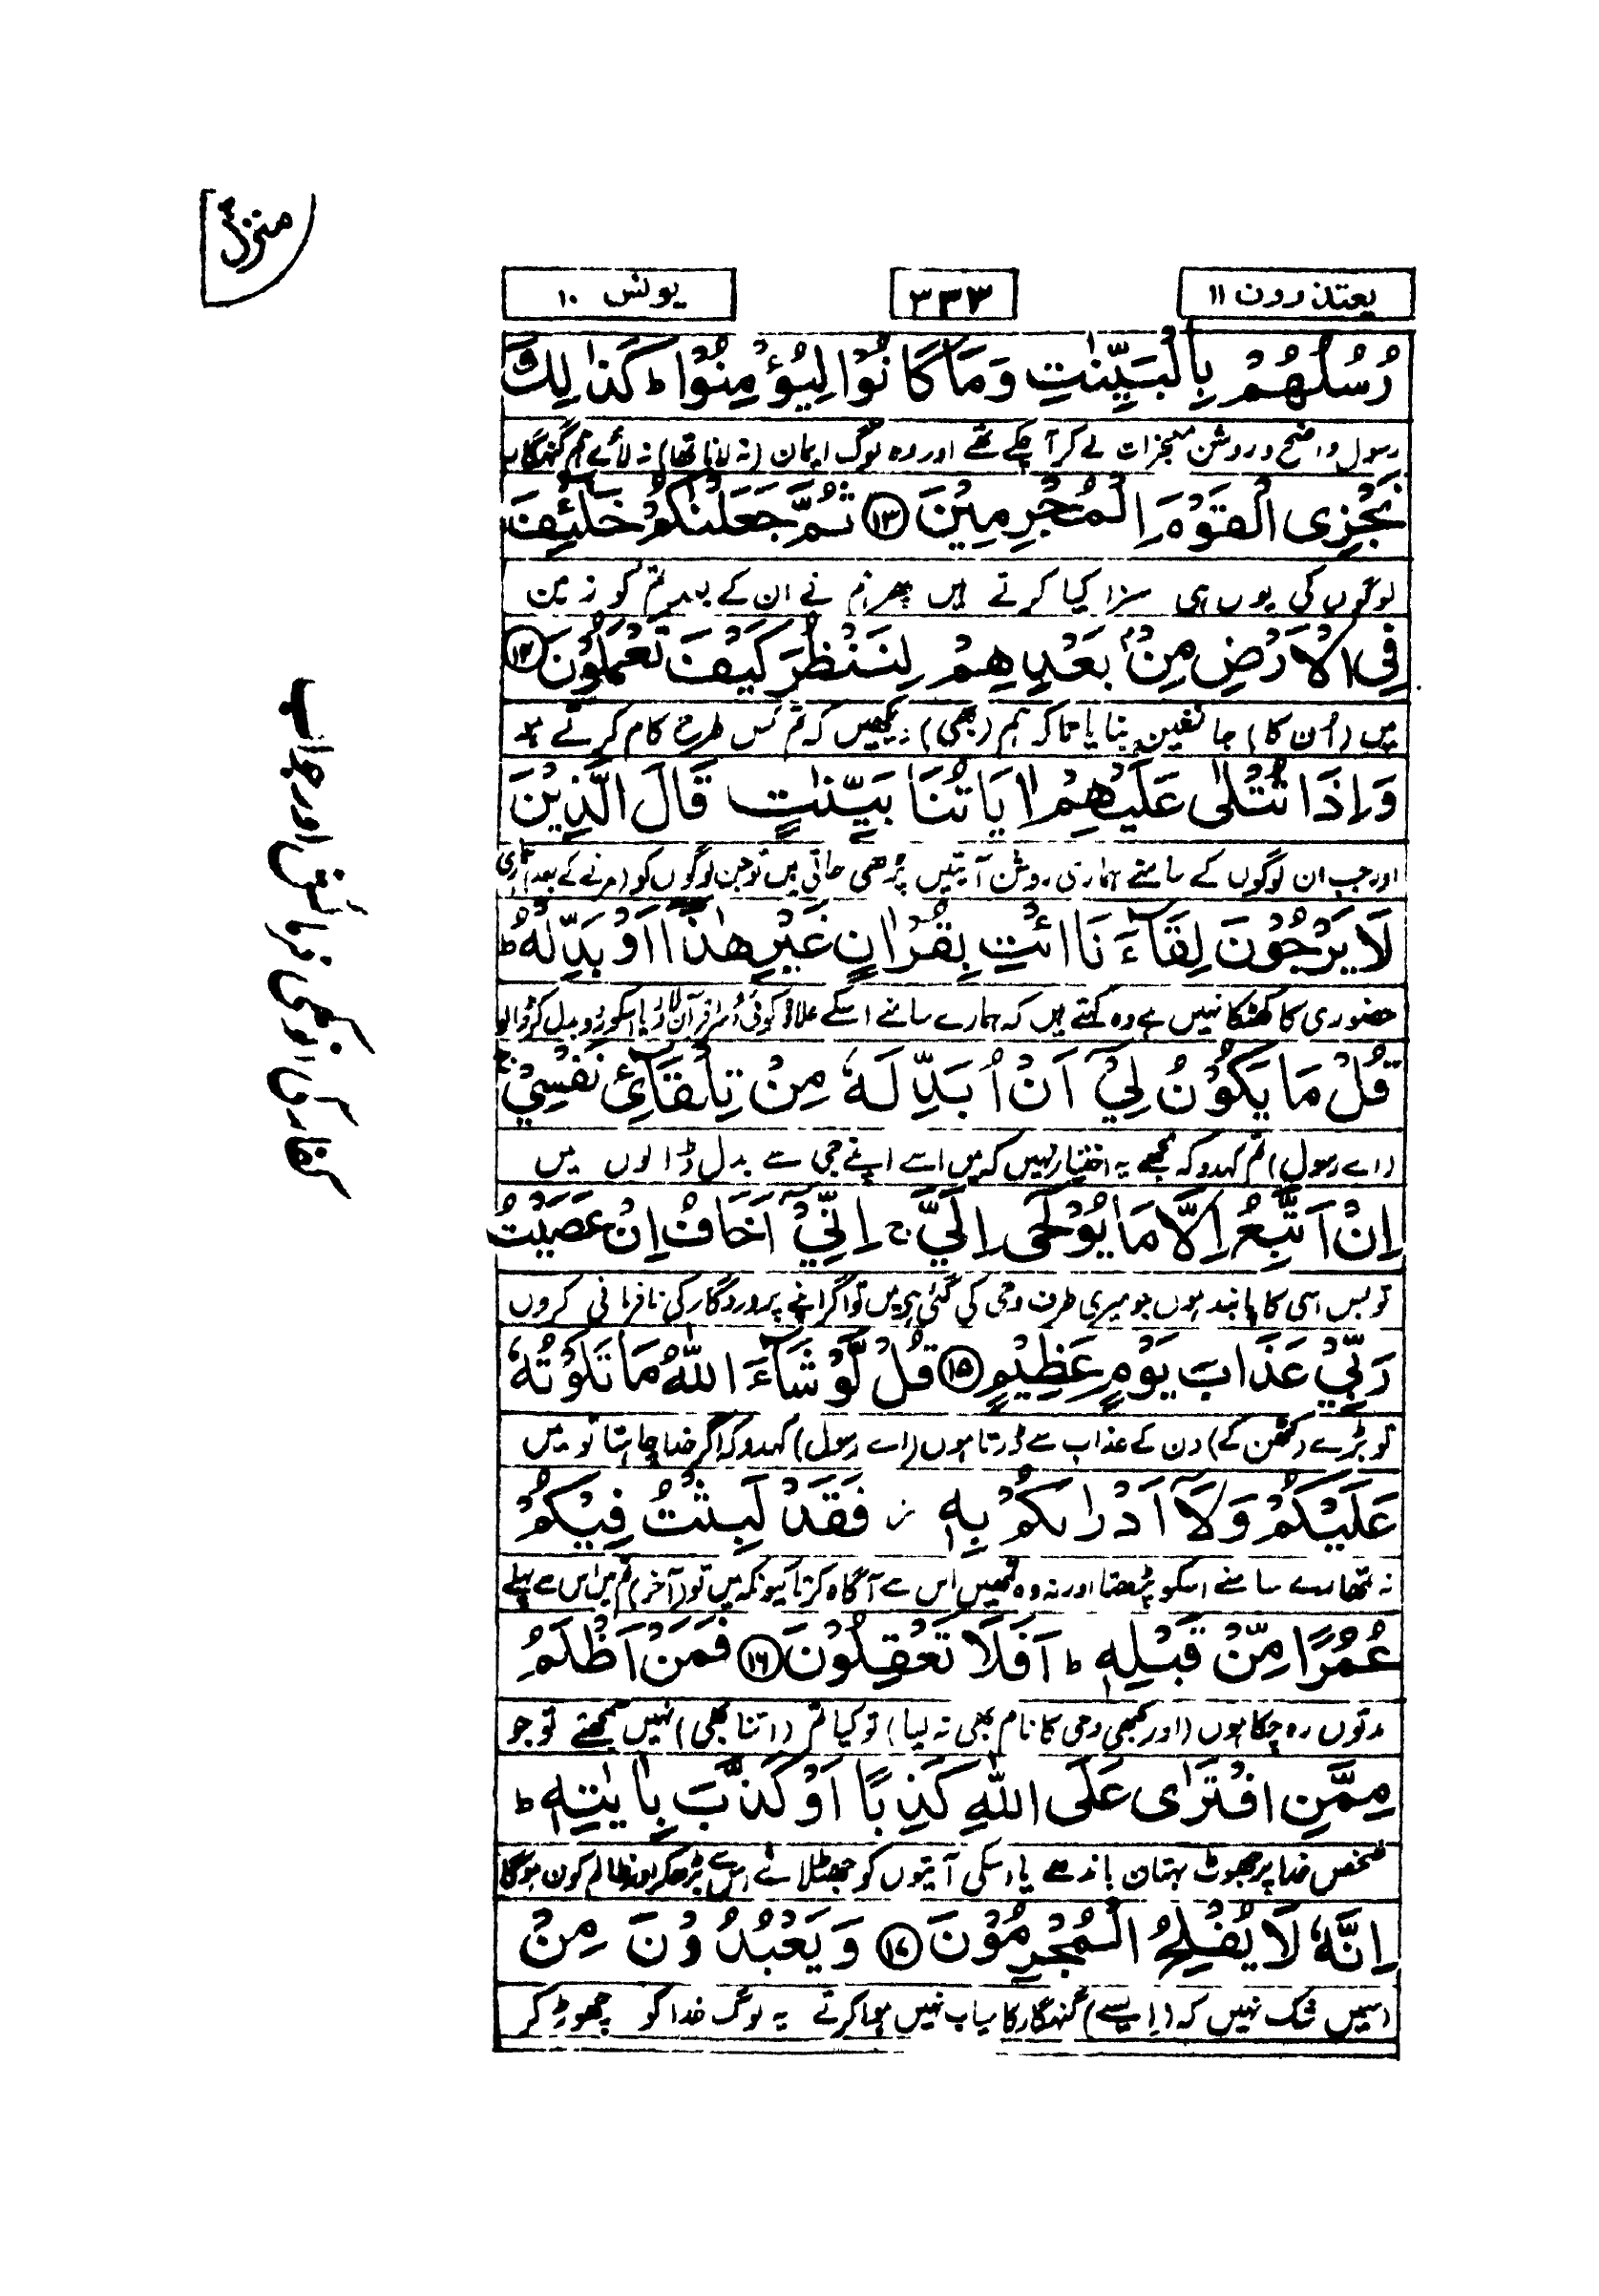 منزل ۳
یعتذرون ۱۱
۳۳۳
یونس ۱۰
رُسُلُهُمْ بِالْبَيِّنٰتِ وَمَا كَانُوْا لِيُؤْمِنُوْا ؕ كَذٰلِكَ
رسول واضح و روشن معجزات لے کر آ چکے تھے اور وہ لوگ ایمان (نہ لانا تھا) نہ لائے ہم گنہگار
نَجْزِى الْقَوْمَ الْمُجْرِمِيْنَ ۱۳ ثُمَّ جَعَلْنٰكُمْ خَلٰٓئِفَ
لوگوں کی یوں ہی سزا کیا کرتے ہیں پھر ہم نے ان کے بعد تم کو زمین
فِى الْاَرْضِ مِنْۢ بَعْدِهِمْ لِنَنْظُرَ كَيْفَ تَعْمَلُوْنَ ۱۴
میں (اُن کا) جانشین بنایا تاکہ ہم (بھی) دیکھیں کہ تم کس طرح کام کرتے ہو
وَاِذَا تُتْلٰى عَلَيْهِمْ اٰيَاتُنَا بَيِّنٰتٍ قَالَ الَّذِيْنَ
اور جب ان لوگوں کے سامنے ہماری روشن آیتیں پڑھی جاتی ہیں تو جن لوگوں کو (مرنے کے بعد) ہماری
لَا يَرْجُوْنَ لِقَآءَنَا ائْتِ بِقُرْاٰنٍ غَيْرِ هٰذَآ اَوْ بَدِّلْهُ ؕ
حضوری کا کھٹکا نہیں ہے وہ کہتے ہیں کہ ہمارے سامنے اسکے علاوہ کوئی دُسرا قرآن لاؤ یا اسکو رَدّ و بدل کر ڈالو
قُلْ مَا يَكُوْنُ لِيْٓ اَنْ اُبَدِّلَهٗ مِنْ تِلْقَآئِ نَفْسِيْ ۚ
(اے رسول) تم کہدو کہ مجھے یہ اختیار نہیں کہ میں اسے اپنے جی سے بدل ڈالوں میں
اِنْ اَتَّبِعُ اِلَّا مَا يُوْحٰٓى اِلَيَّ ۚ اِنِّيْٓ اَخَافُ اِنْ عَصَيْتُ
تو بس اسی کا پابند ہوں جو میری طرف وحی کی گئی ہے میں تو اگر اپنے پروردگار کی نافرمانی کروں
رَبِّيْ عَذَابَ يَوْمٍ عَظِيْمٍ ۱۵ قُلْ لَّوْ شَآءَ اللّٰهُ مَا تَلَوْتُهٗ
تو بڑے (کٹھن کے) دن کے عذاب سے ڈرتا ہوں (اے رسول) کہدو کہ اگر خدا چاہتا تو میں
عَلَيْكُمْ وَلَآ اَدْرٰىكُمْ بِهٖ ز فَقَدْ لَبِثْتُ فِيْكُمْ
نہ تمھارے سامنے اسکو پڑھتا اور نہ وہ تمھیں اس سے آگاہ کرتا کیونکہ میں تو (آخر) تم میں اس سے پہلے
عُمُرًا مِّنْ قَبْلِهٖ ؕ اَفَلَا تَعْقِلُوْنَ ۱۶ فَمَنْ اَظْلَمُ
مدتوں رہ چکا ہوں (اور کبھی وحی کا نام بھی نہ لیا) تو کیا تم (اتنا بھی) نہیں سمجھتے تو جو
مِمَّنِ افْتَرٰى عَلَى اللّٰهِ كَذِبًا اَوْ كَذَّبَ بِاٰيٰتِهٖ ؕ
شخص خدا پر جھوٹ بہتان باندھے یا اسکی آیتوں کو جھٹلائے اس سے بڑھکر اور ظالم کون ہوگا
اِنَّهٗ لَا يُفْلِحُ الْمُجْرِمُوْنَ ۱۷ وَيَعْبُدُوْنَ مِنْ
اسمیں شک نہیں کہ (ایسے) گنہگار کامیاب نہیں ہوا کرتے یہ لوگ خدا کو چھوڑ کر
کفار کی انوکھی فرمائش اور جواب